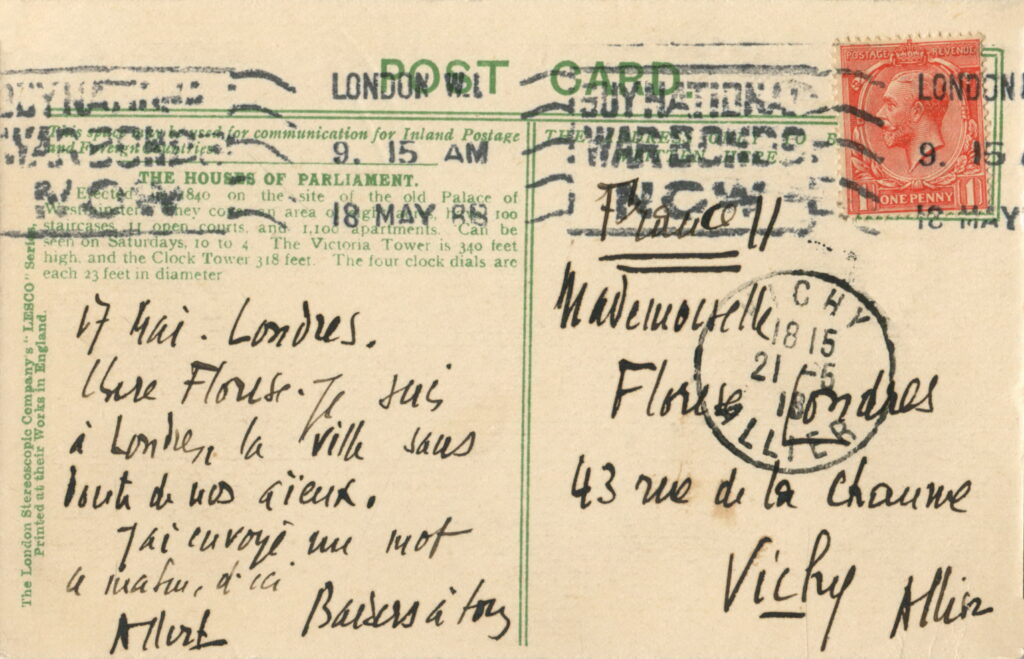 POST CARD
LONDON W.1
9. 15 AM
18 MAY 18
BUY NATIONAL
WAR BONDS
NOW
BUY NATIONAL
WAR BONDS
NOW
LONDON
9. 15 A
18 MAY
POSTAGE REVENUE
1 ONE PENNY 1
This space may be used for communication for Inland Postage
and Foreign Countries.
THE ADDRESS TO B
HERE
THE HOUSES OF PARLIAMENT.
Erected 1840 on the site of the old Palace of
Westminster. They cover an area of eight acres, 100
staircases, 11 open courts, and 1,100 apartments. Can be
seen on Saturdays, 10 to 4. The Victoria Tower is 340 feet
high, and the Clock Tower 318 feet. The four clock dials are
each 23 feet in diameter
The London Stereoscopic Company's "LESCO" Series.
Printed at their Works in England.
17 Mai. Londres.
Chere Florise. Je suis
à Londres, la ville sans
doute de nos aïeux.
J'ai envoyé un mot
ce matin, d'ici
Baisers à tous
Albert
France
Mademoiselle
Florise Londres
43 rue de la Chaume
Vichy
Allier
VICHY
18 15
21 -5
18
ALLIER